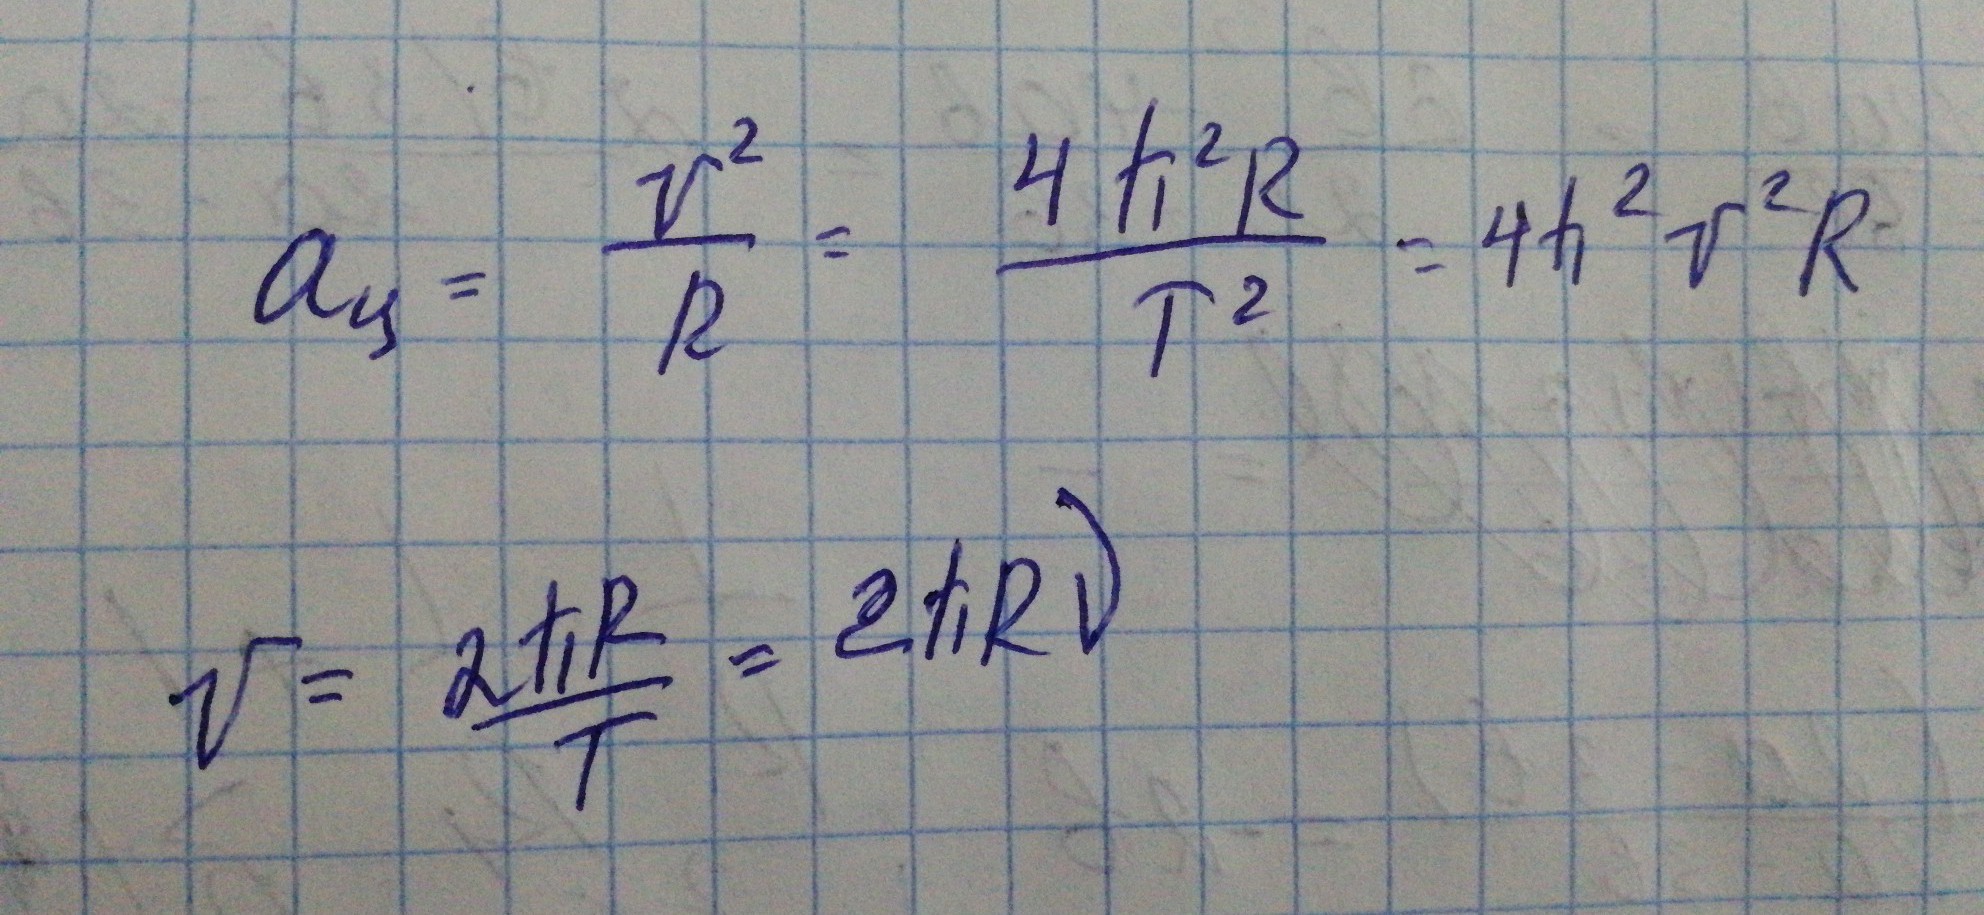 aц = v²/R = 4π²R/T² = 4π²v²R
v = 2πR/T = 2πRν